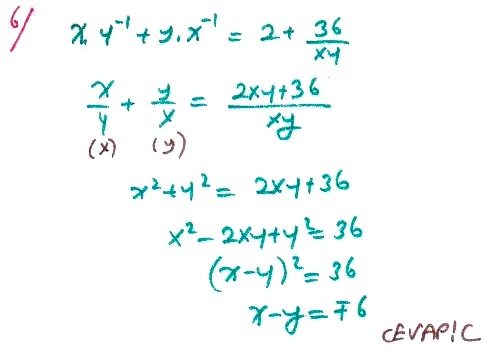 6/
x.y⁻¹ + y.x⁻¹ = 2 + 36/xy
x/y + y/x = 2xy+36/xy
(x) (y)
x² + y² = 2xy + 36
x² - 2xy + y² = 36
(x-y)² = 36
x-y = ∓6
CEVAP!C